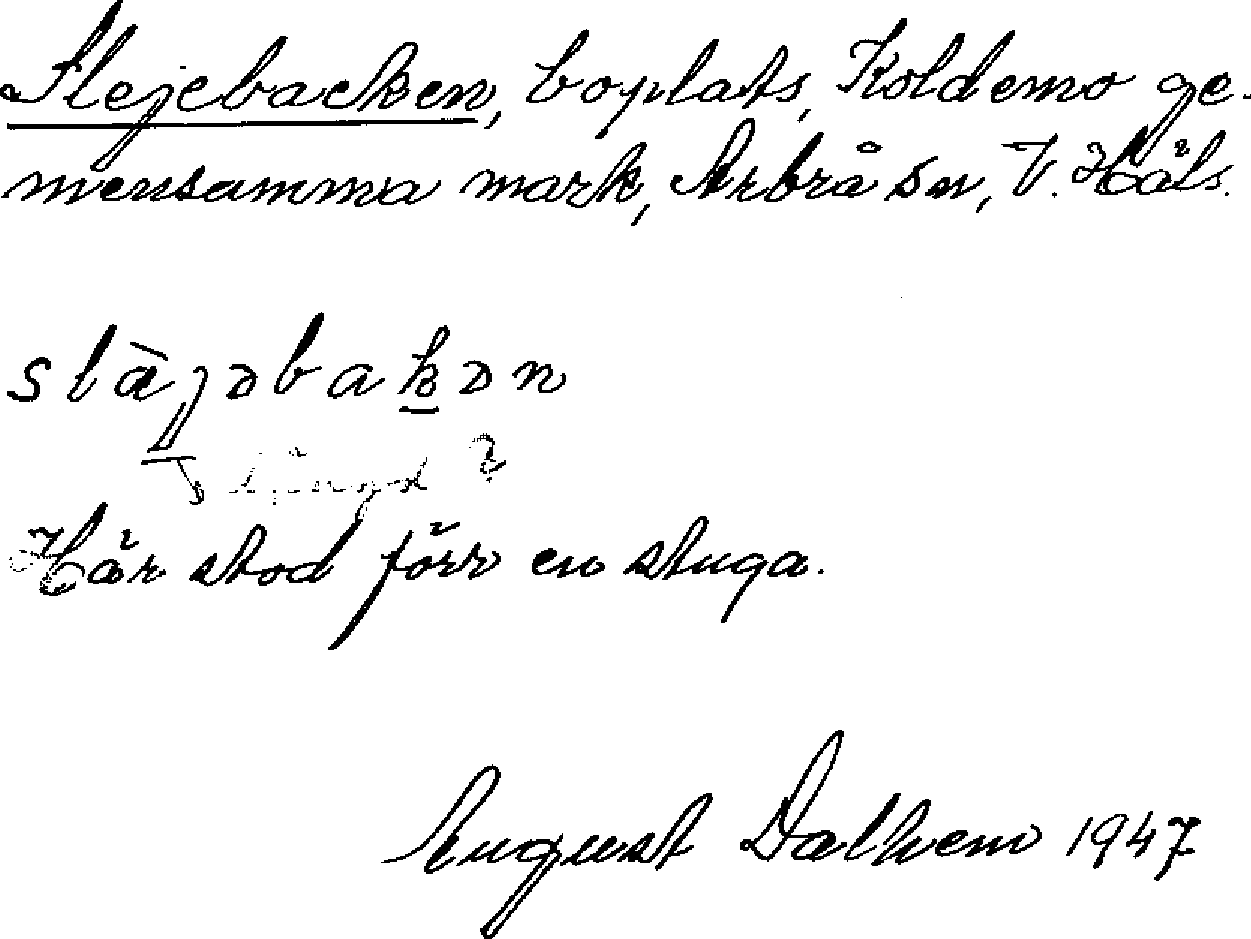 Slejebacken, boplats, Koldemo ge-
mensamma mark, Arbrå sn, V. Häls.
slàjəbakən
längd ?
Här stod förr en stuga.
August Dalhem 1947